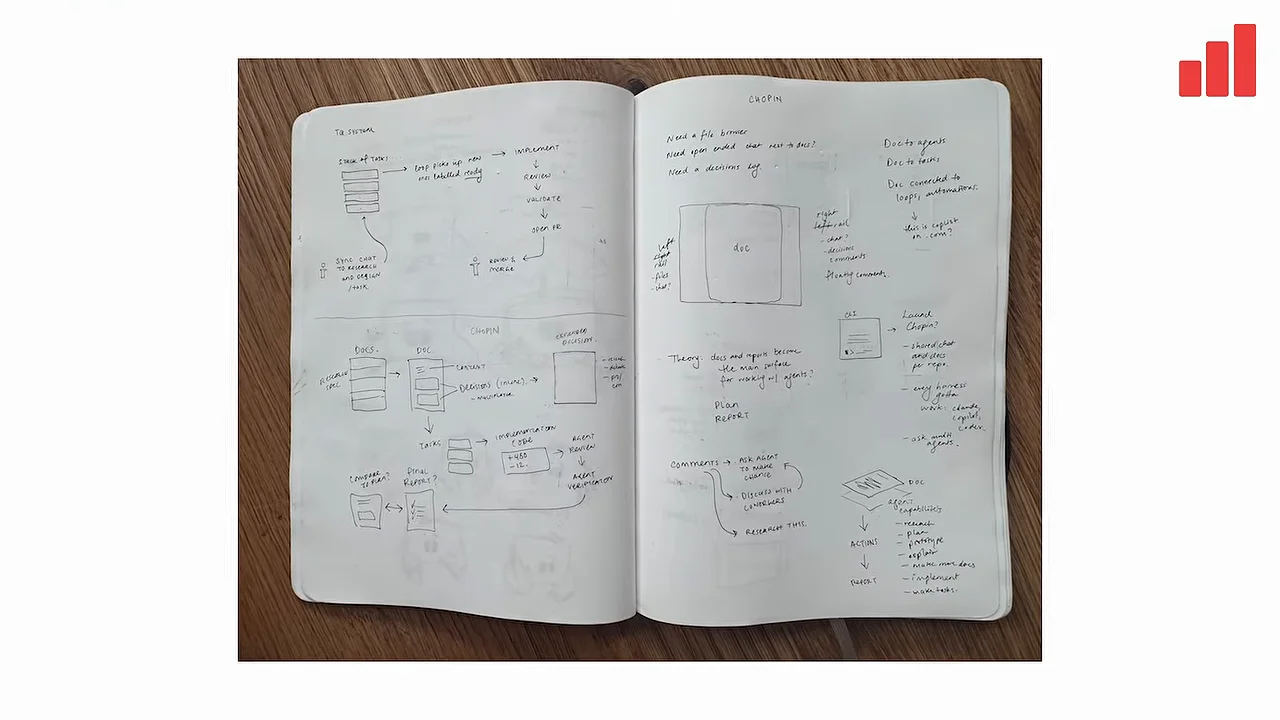 TQ SYSTEM
STACK OF TASKS
loop picks up new
ones labelled ready
IMPLEMENT
REVIEW
VALIDATE
OPEN PR
REVIEW &
MERGE
SYNC CHAT
TO RESEARCH
AND DESIGN
/task
CHOPIN
DOCS.
DOC
EXPANDED
DECISION
RESEARCH
SPEC
CONTENT
DECISIONS (inline)
- multiplayer
TASKS
IMPLEMENTATION
CODE
+400
-12.
AGENT
REVIEW
AGENT
VERIFICATION
COMPARE
TO PLAN?
FINAL
REPORT?
CHOPIN
Need a file browser
Need open ended chat next to docs?
Need a decisions log.
Doc to agents
Doc to tasks
Doc connected to
loops, automations.
this is copilot
on .com?
left
rail
- files
- chat?
doc
right
rail
- chat?
- decisions
comments
floaty comments.
CLI
Launch
Chopin?
- shared chat
and docs
per repo.
- every harness
gotta
work: claude,
copilot,
codex.
Theory: docs and reports become
the main surface
for working w/ agents?
Plan
REPORT
COMMENTS
- ASK AGENT
TO MAKE
CHANGE
- DISCUSS WITH
COWORKERS
RESEARCH THIS.
DOC
agent
capabilities
- research
- plan
- prototype
- explain
- make more docs
- implement
- make tasks.
ACTIONS
REPORT